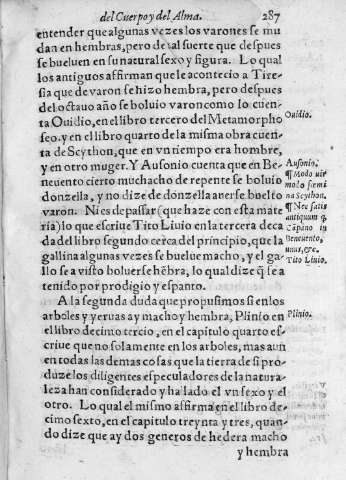 del Cuerpo y del Alma. 287
entender que algunas vezes los varones se mu
dan en hembras, pero de al suerte que despues
se bueluen en su natural sexo y figura. Lo qual
los antiguos affirman que le acontecio a Tire-
sia que de varon se hizo hembra, pero despues
del octauo año se boluio varon como lo cuen-
ta Ouidio, en el libro tercero del Metamorpho
seo. y en el libro quarto de la misma obra cuen-
ta de Scython, que en vn tiempo era hombre,
y en otro muger. Y Ausonio cuenta que en Be-
neuento cierto muchacho de repente se boluio
donzella, y no dize de donzella auerse buelto
varon. Ni es de passar (que haze con esta mate
ria) lo que escriue Tito Liuio en la tercera deca
da del libro segundo cerca del principio, que la
gallina algunas vezes se buelue macho, y el ga-
llo se a visto boluerse hẽbra, lo qual dize q̃ se a
tenido por prodigio y espanto.
A la segunda duda que propusimos si en los
arboles y yeruas ay macho y hembra, Plinio en
el libro decimo tercio, en el capitulo quarto es-
criue que no solamente en los arboles, mas aun
en todas las demas cosas que la tierra de si pro-
duze los diligentes especuladores de la natura-
leza han considerado y hallado el vn sexo y el
otro. Lo qual el mismo affirma en el libro de-
cimo sexto, en el capitulo treynta y tres, quan-
do dize que ay dos generos de hedera macho
y hembra
Ouidio.
Ausonio.
¶ Modo uir
modo fœmi
na Scython.
¶ Nec satis
antiquum q̃
Cãpano in
Beneuento,
unus, &c.
Tito Liuio.
Plinio.